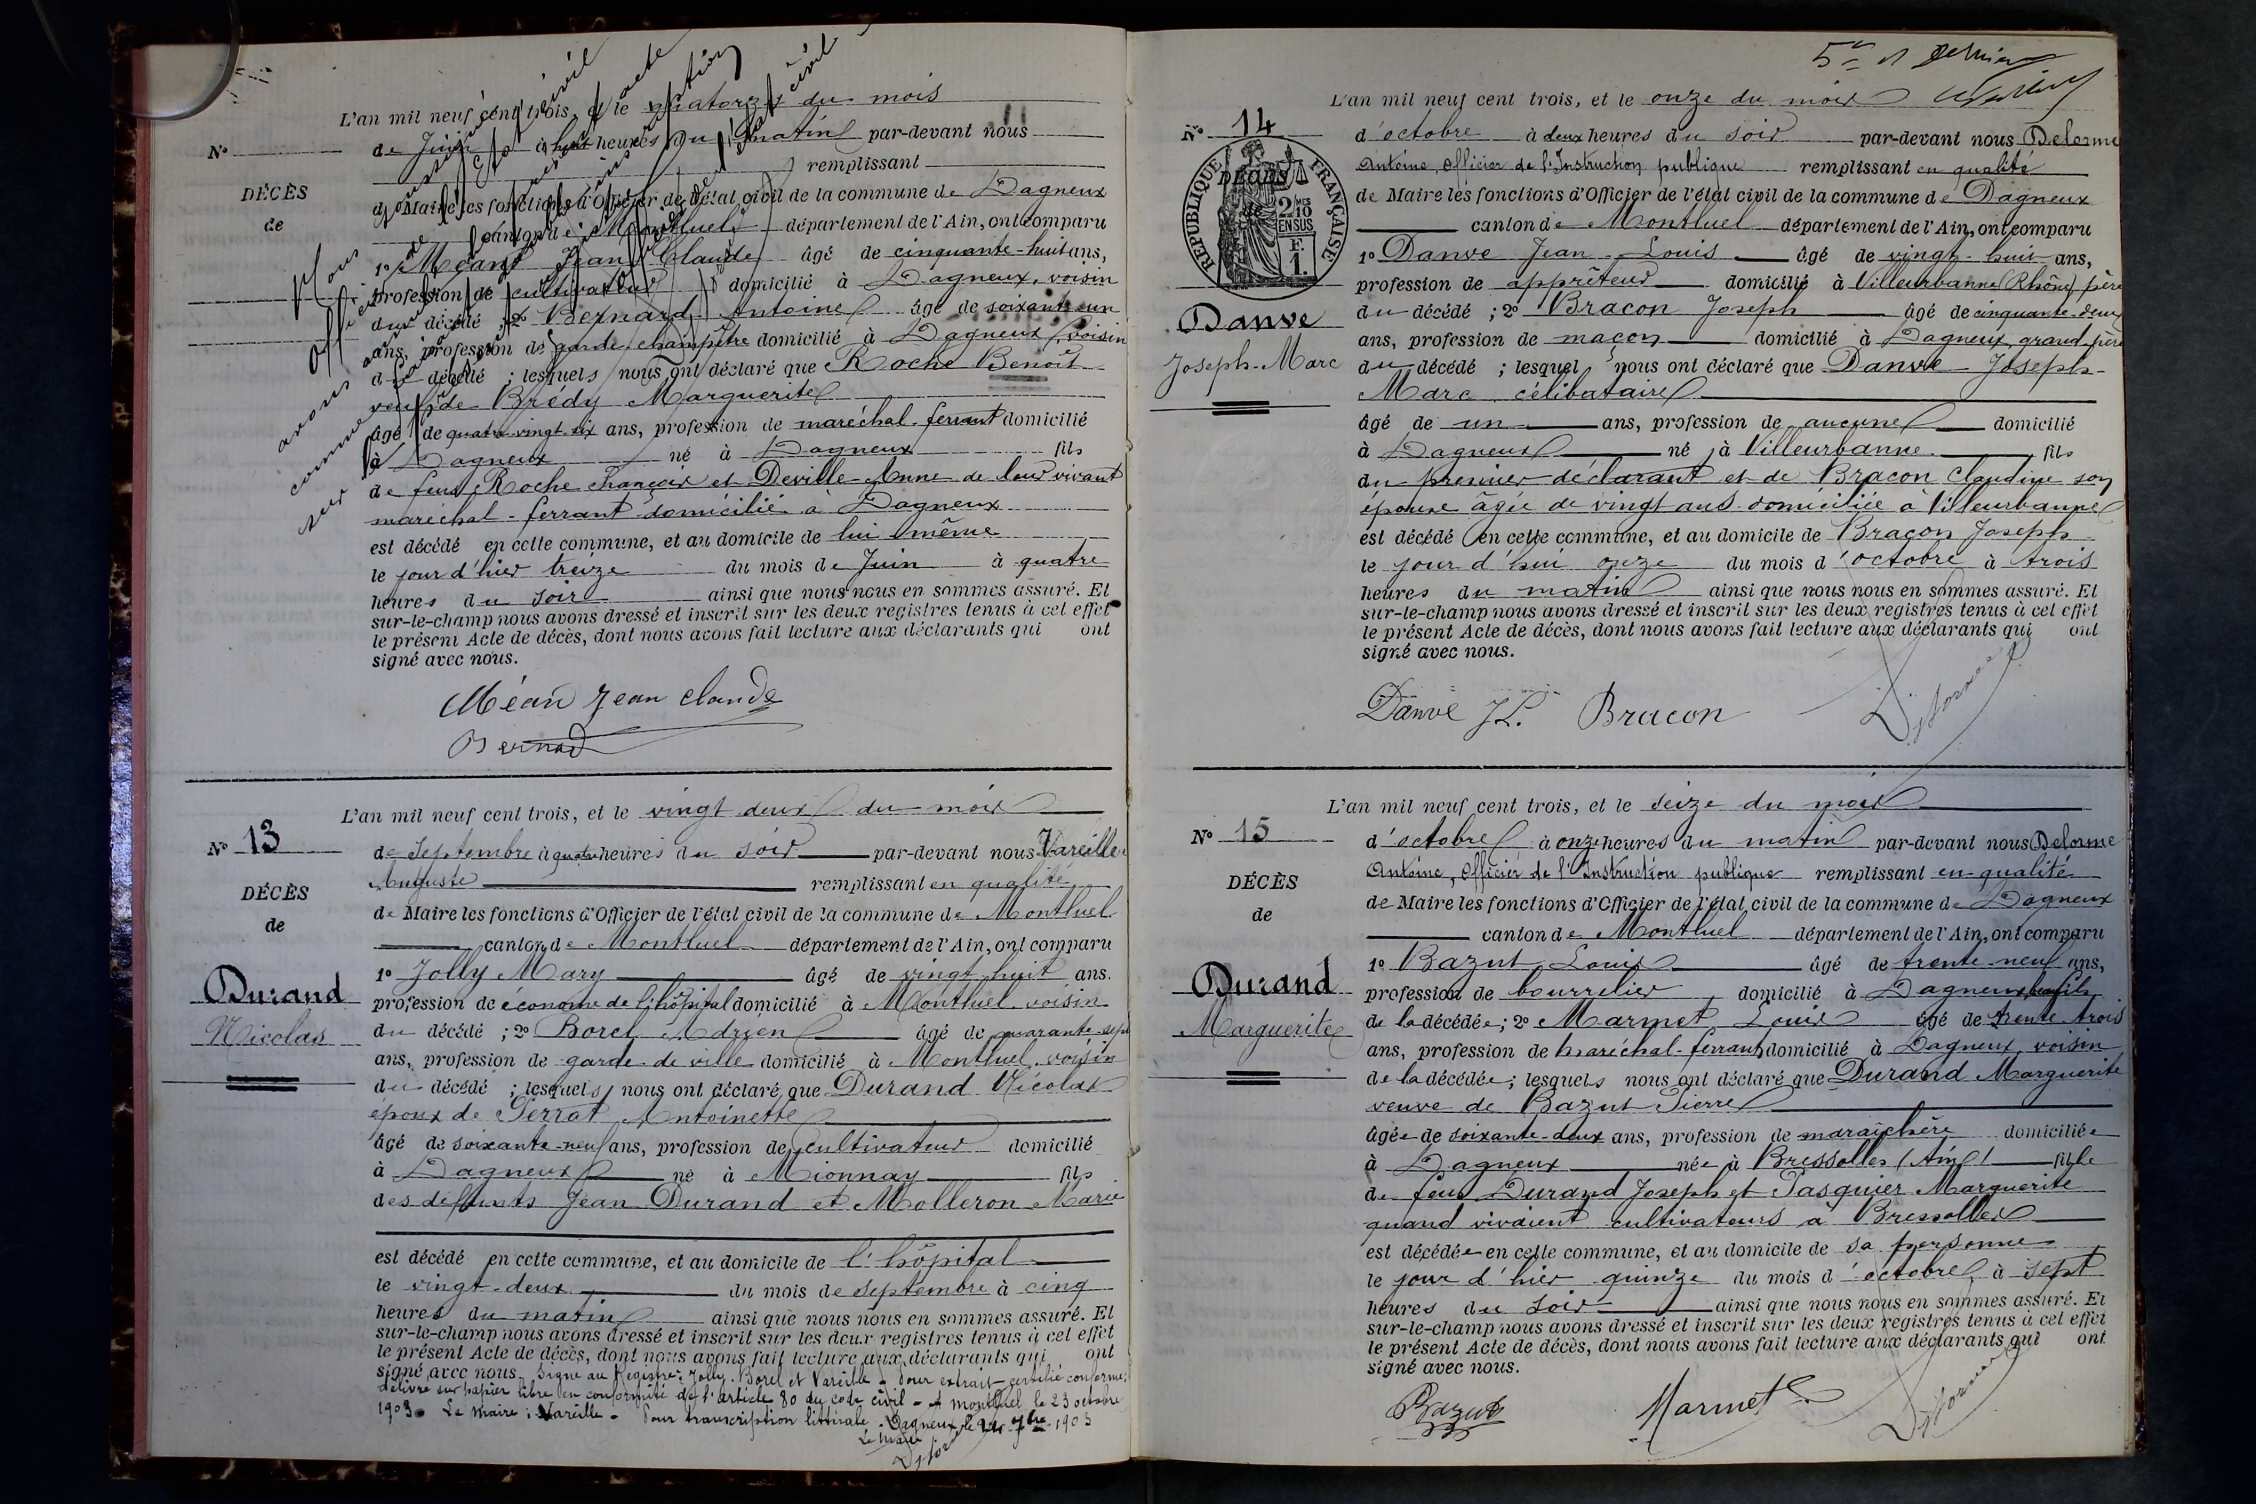 L'an mil neuf cent trois, et le quatorze du mois
de Juin à huit heures du matin par-devant nous
N°
remplissant
DÉCÈS
de
de Maire les fonctions d'Officier de l'état civil de la commune de Dagneux
canton de Montluel département de l'Ain, ont comparu
1° Méant Jean Claude âgé de cinquante-huit ans,
profession de cultivateur domicilié à Dagneux, voisin
du décédé ; 2° Bernard Antoine âgé de soixante un
ans, profession de garde-champêtre domicilié à Dagneux, voisin
du décédé ; lesquels nous ont déclaré que Roche Benoît
veuf de Brédy Marguerite
âgé de quatre-vingt six ans, profession de maréchal-ferrant domicilié
à Dagneux né à Dagneux fils
de feus Roche François et Deville Anne de leur vivant
maréchal-ferrant domicilié à Dagneux
est décédé en cette commune, et au domicile de lui même
le jour d'hier treize du mois de Juin à quatre
heures du soir ainsi que nous nous en sommes assuré. Et
sur-le-champ nous avons dressé et inscrit sur les deux registres tenus à cet effet
le présent Acte de décès, dont nous avons fait lecture aux déclarants qui ont
signé avec nous.
Nous
Officier
avons
comme
sur
état civil
acte
Méan Jean Claude
Bernard
L'an mil neuf cent trois, et le vingt deux du mois
N° 13
de Septembre à quatre heures du soir par-devant nous Vareille
Auguste remplissant en qualité
DÉCÈS
de
de Maire les fonctions d'Officier de l'état civil de la commune de Montluel
canton de Montluel département de l'Ain, ont comparu
1° Jolly Mary âgé de vingt huit ans.
Durand
Nicolas
profession de économe de l'hôpital domicilié à Montluel voisin
du décédé ; 2° Borel Adrien âgé de quarante-sept
ans, profession de garde de ville domicilié à Montluel voisin
du décédé ; lesquels nous ont déclaré que Durand Nicolas
époux de Perrat Antoinette
âgé de soixante-neuf ans, profession de cultivateur domicilié
à Dagneux né à Mionnay fils
des défunts Jean Durand et Molleron Marie
est décédé en cette commune, et au domicile de l'hôpital
le vingt-deux du mois de septembre à cinq
heures du matin ainsi que nous nous en sommes assuré. Et
sur-le-champ nous avons dressé et inscrit sur les deux registres tenus à cet effet
le présent Acte de décès, dont nous avons fait lecture aux déclarants qui ont
signé avec nous. Signé au Registre : Jolly. Borel et Vareille - Pour extrait certifié conforme,
délivré sur papier libre en conformité de l'article 80 du code civil - A Montluel le 23 octobre
1903. Le Maire : Vareille - Pour transcription littérale. Dagneux, le 24 1903
Le Maire
Delorme
5e et dernier
L'an mil neuf cent trois, et le onze du mois
N° 14
d'octobre à deux heures du soir par-devant nous Delorme
Antoine, Officier de l'Instruction publique remplissant en qualité
RÉPUBLIQUE FRANÇAISE
DÉCÈS
de
2/10 EN SUS
F. 1.
de Maire les fonctions d'Officier de l'état civil de la commune de Dagneux
canton de Montluel département de l'Ain, ont comparu
1° Danve Jean-Louis âgé de vingt-huit ans,
profession de apprêteur domicilié à Villeurbanne (Rhône) père
Danve
Joseph-Marc
du décédé ; 2° Bracon Joseph âgé de cinquante-deux
ans, profession de maçon domicilié à Dagneux, grand-père
du décédé ; lesquel nous ont déclaré que Danve Joseph-
Marc célibataire
âgé de un ans, profession de aucune domicilié
à Dagneux né à Villeurbanne fils
du premier déclarant et de Bracon Claudine son
épouse âgée de vingt ans domiciliée à Villeurbanne
est décédé en cette commune, et au domicile de Bracon Joseph
le jour d'hui onze du mois d'octobre à trois
heures du matin ainsi que nous nous en sommes assuré. Et
sur-le-champ nous avons dressé et inscrit sur les deux registres tenus à cet effet
le présent Acte de décès, dont nous avons fait lecture aux déclarants qui ont
signé avec nous.
Danve J.L. Bracon Delorme
L'an mil neuf cent trois, et le seize du mois
N° 15
d'octobre à onze heures du matin par-devant nous Delorme
Antoine, Officier de l'Instruction publique remplissant en qualité
DÉCÈS
de
de Maire les fonctions d'Officier de l'état civil de la commune de Dagneux
canton de Montluel département de l'Ain, ont comparu
1° Bazut Louis âgé de trente-neuf ans,
Durand
Marguerite
profession de bourrelier domicilié à Dagneux, fils
de la décédée ; 2° Marmet Louis âgé de trente trois
ans, profession de maréchal-ferrant domicilié à Dagneux, voisin
de la décédée ; lesquels nous ont déclaré que Durand Marguerite
veuve de Bazut Pierre
âgée de soixante-deux ans, profession de maraîchère domiciliée
à Dagneux née à Bressolles (Ain) fille
de feus Durand Joseph et Pasquier Marguerite
quand vivaient cultivateurs à Bressolles
est décédée en cette commune, et au domicile de sa personne
le jour d'hier quinze du mois d'octobre à sept
heures du soir ainsi que nous nous en sommes assuré. Et
sur-le-champ nous avons dressé et inscrit sur les deux registres tenus à cet effet
le présent Acte de décès, dont nous avons fait lecture aux déclarants qui ont
signé avec nous.
Bazut Marmet Delorme